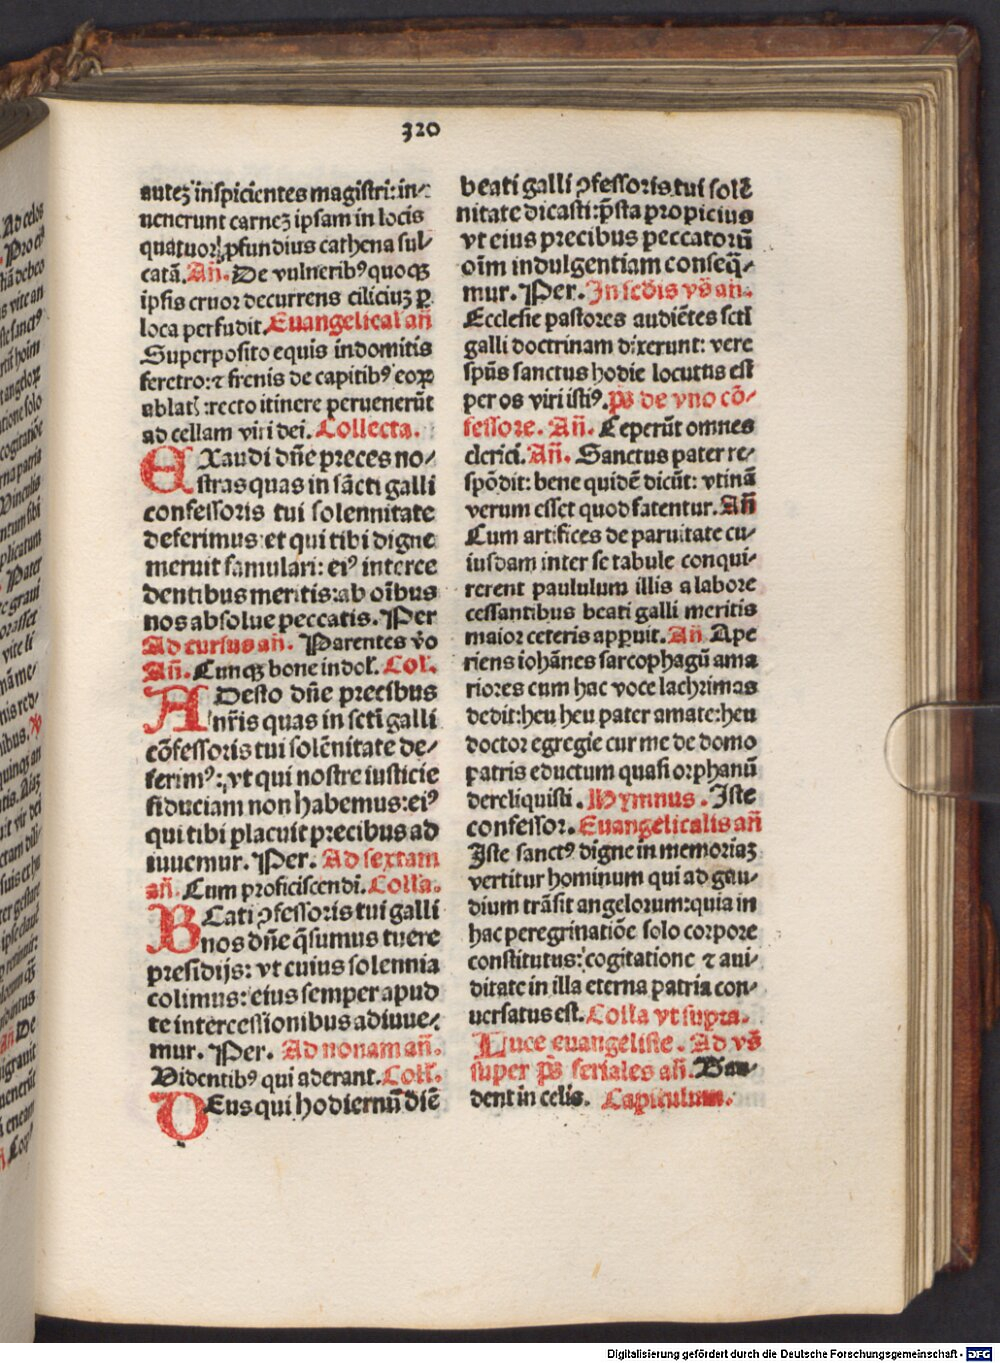 320
autez inspicientes magistri: in⸗
uenerunt carnez ipsam in locis
quatuor ꝓfundius cathena sul⸗
catã. Añ. De vulneribꝰ quoqꝫ
ipsis cruor decurrens ciliciuꝫ ꝑ
loca perfudit. Euangelical añ
Superposito equis indomitis
feretro: ⁊ frenis de capitibꝰ eoꝝ
ablatis: recto itinere peruenerũt
ad cellam viri dei. Collecta.
EXaudi dñe preces no⸗
stras quas in sãcti galli
confessoris tui solennitate
deferimus: et qui tibi digne
meruit famulari: eiꝰ interce
dentibus meritis: ab oĩbus
nos absolue peccatis. Per
Ad cursus añ. Parentes ṽo
Añ. Cunqꝫ bone indol. Col.
ADesto dñe precibus
nr̃is quas in scti galli
cõfessoris tui solẽnitate de⸗
ferimꝰ: vt qui nostre iusticie
fiduciam non habemus: eiꝰ
qui tibi placuit precibus ad
iuuemur. Per. Ad sextam
añ. Cum proficiscendi. Colla.
BEati ꝯfessoris tui galli
nos dñe q̃sumus tuere
presidijs: vt cuius solennia
colimus: eius semper apud
te intercessionibus adiuue⸗
mur. Per. Ad nonam añ.
Videntibꝰ qui aderant. Coll.
DEus qui hodiernũ diẽ
beati galli ꝯfessoris tui solẽ
nitate dicasti: p̃sta propicius
vt eius precibus peccatorũ
oĩm indulgentiam conseq̃⸗
mur. Per. In scdis vṽ añ.
Ecclesie pastores audiẽtes scti
galli doctrinam dixerunt: vere
spũs sanctus hodie locutus est
per os viri istiꝰ. p̃s de vno cõ⸗
fessore. Añ. Ceperũt omnes
clerici. Añ. Sanctus pater re⸗
spõdit: bene quidẽ dicũt: vtinã
verum esset quod fatentur. Añ
Cum artifices de paruitate cu⸗
iusdam inter se tabule conqui⸗
rerent paululum illis a labore
cessantibus beati galli meritis
maior ceteris apparuit. Añ Ape
riens iohãnes sarcophagũ ama
riores cum hac voce lachrimas
dedit: heu heu pater amate: heu
doctor egregie cur me de domo
patris eductum quasi orphanũ
dereliquisti. Hymnus. Iste
confessor. Euangelicalis añ
Iste sanctꝰ digne in memoriaꝫ
vertitur hominum qui ad gau⸗
dium trãsit angelorum: quia in
hac peregrinatiõe solo corpore
constitutus: cogitatione ⁊ aui⸗
ditate in illa eterna patria con⸗
uersatus est. Colla vt supra.
Luce euangeliste. Ad vṽ
super p̃s feriales añ. Gau⸗
dent in celis. Capitulum.
Digitalisierung gefördert durch die Deutsche Forschungsgemeinschaft - DFG